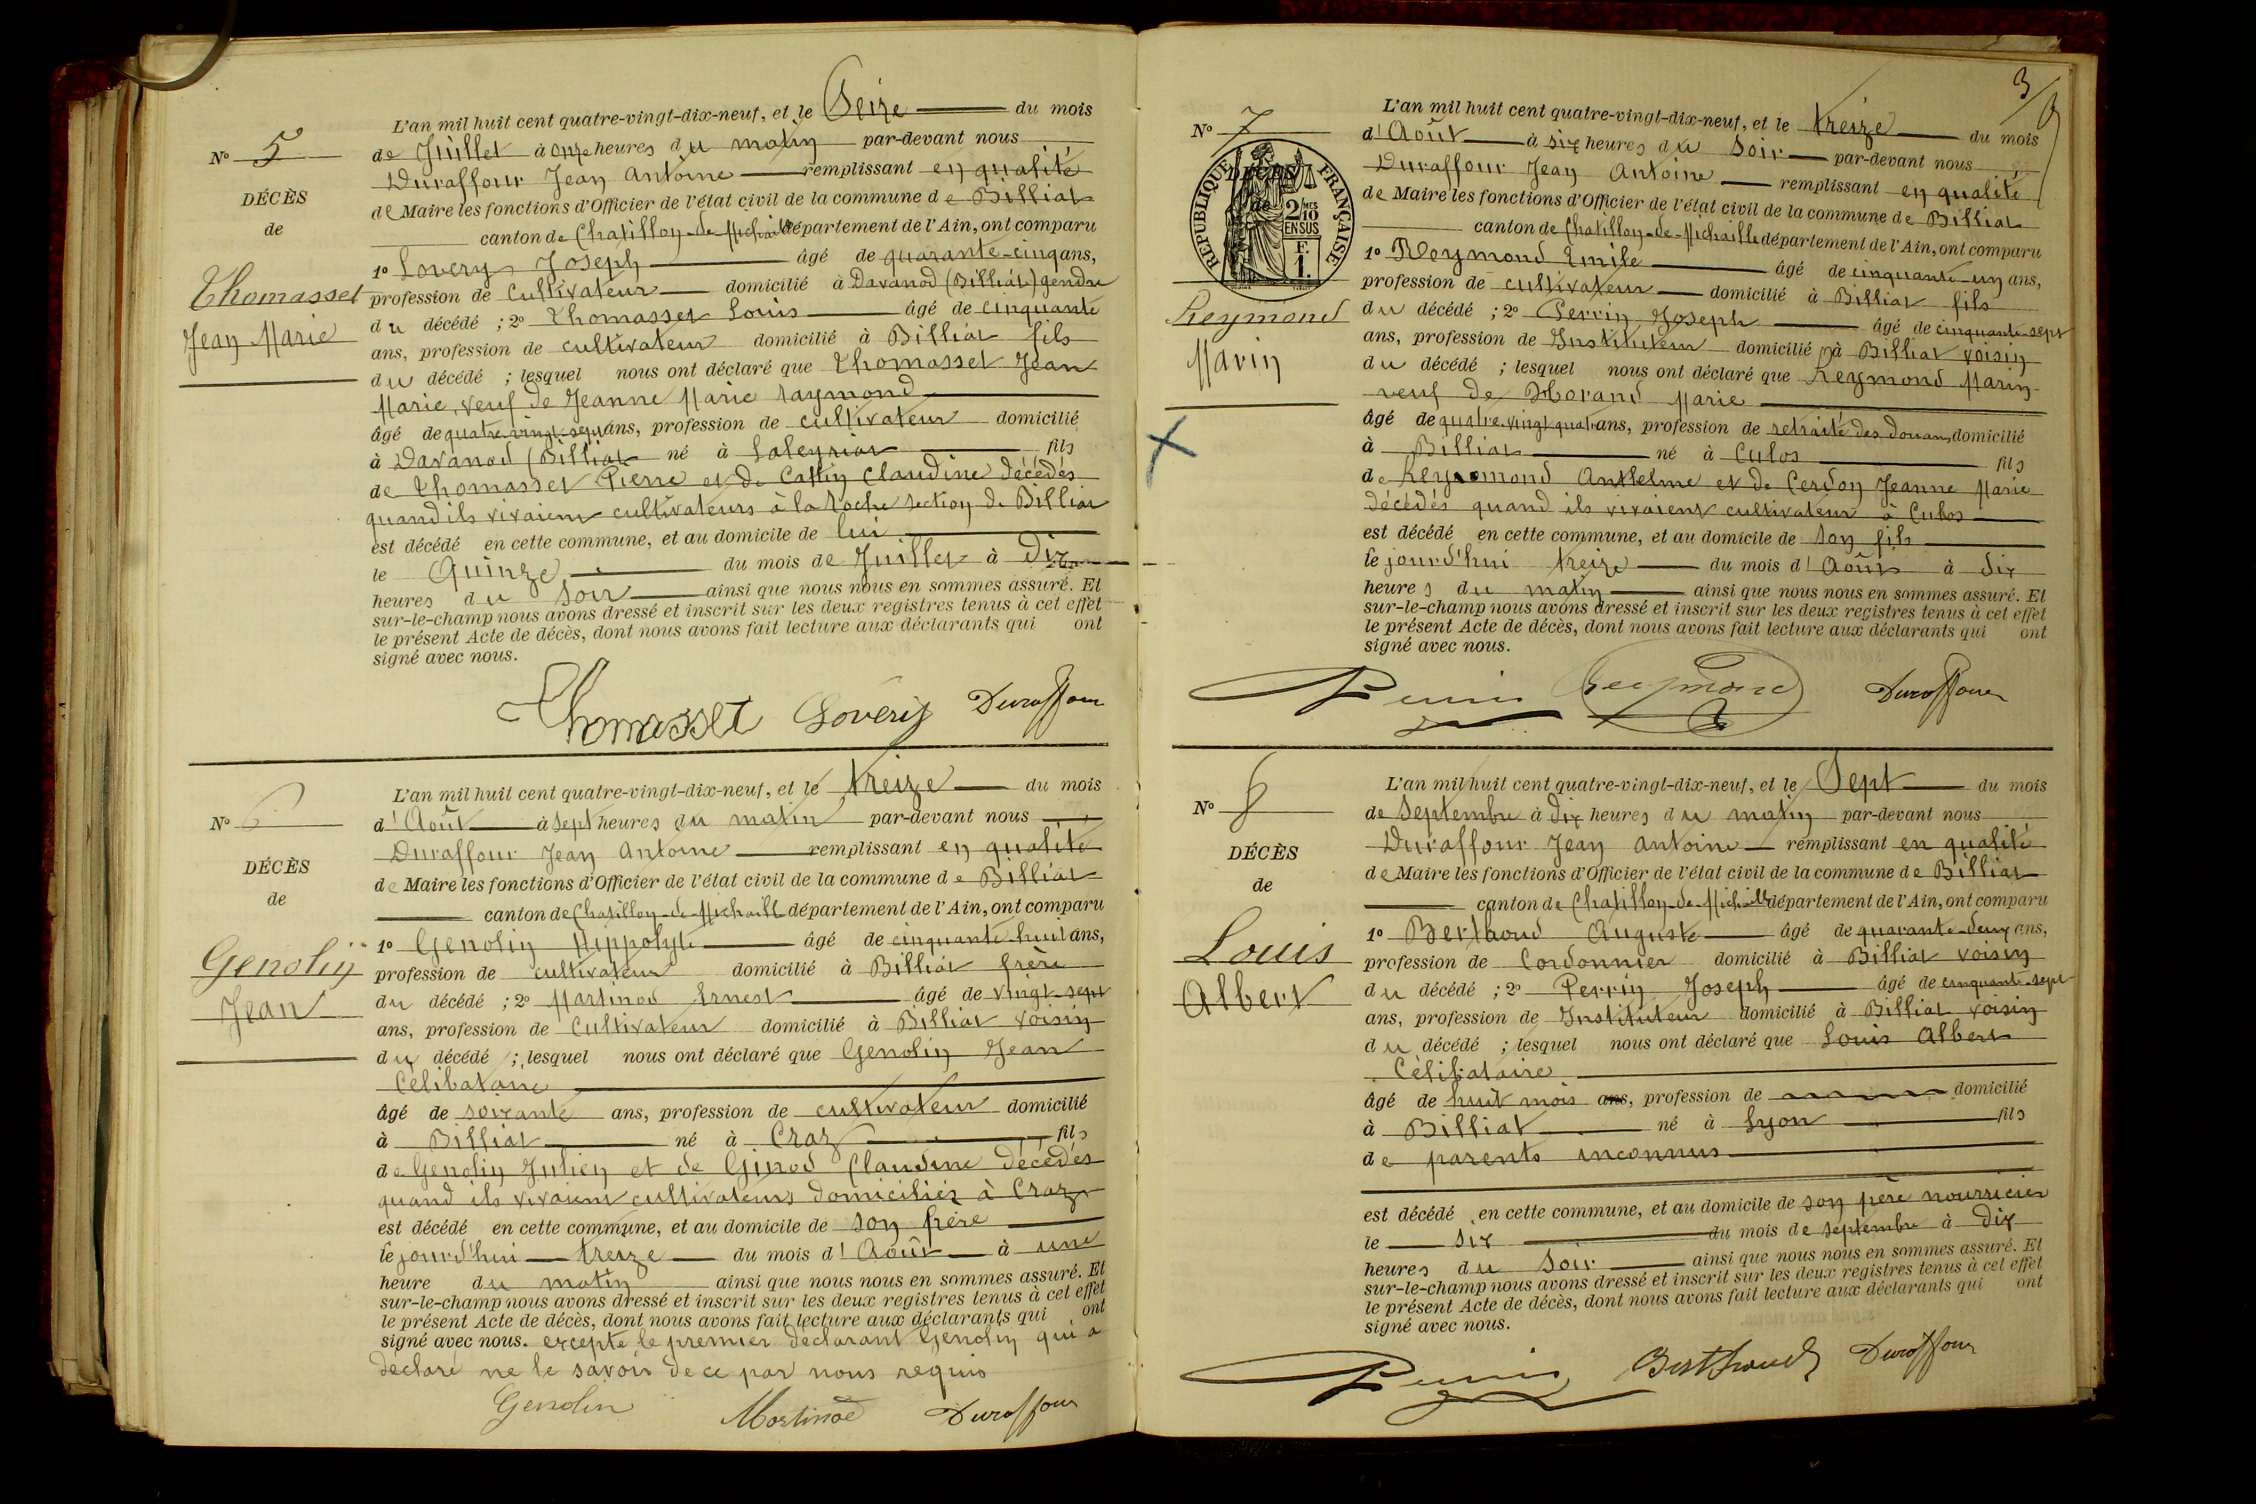 N° 5
DÉCÈS
de
Thomasset
Jean Marie
L'an mil huit cent quatre-vingt-dix-neuf, et le Seize du mois
de Juillet à onze heures du matin par-devant nous
Duraffour Jean Antoine remplissant en qualité
de Maire les fonctions d'Officier de l'état civil de la commune de Billiat
canton de Chatillon-de-Michaille département de l'Ain, ont comparu
1° Lovery Joseph âgé de quarante-cinq ans,
profession de Cultivateur domicilié à Davanod (Billiat) gendre
du décédé ; 2° Thomasset Louis âgé de cinquante
ans, profession de cultivateur domicilié à Billiat fils
du décédé ; lesquel nous ont déclaré que Thomasset Jean
Marie, veuf de Jeanne Marie Raymond
âgé de quatre-vingt-sept ans, profession de cultivateur domicilié
à Davanod (Billiat né à Laleyriat fils
de Thomasset Pierre et de Cattin Claudine décédés
quand ils vivaient cultivateurs à la Roche section de Billiat
est décédé en cette commune, et au domicile de lui
le Quinze du mois de Juillet à Dix
heures du Soir ainsi que nous nous en sommes assuré. Et
sur-le-champ nous avons dressé et inscrit sur les deux registres tenus à cet effet
le présent Acte de décès, dont nous avons fait lecture aux déclarants qui ont
signé avec nous.
Thomasset Lovery Duraffour
N° 6
DÉCÈS
de
Genolin
Jean
L'an mil huit cent quatre-vingt-dix-neuf, et le treize du mois
d'Août à sept heures du matin par-devant nous
Duraffour Jean Antoine remplissant en qualité
de Maire les fonctions d'Officier de l'état civil de la commune de Billiat
canton de Chatillon-de-Michaille département de l'Ain, ont comparu
1° Genolin Hippolyte âgé de cinquante-huit ans,
profession de cultivateur domicilié à Billiat frère
du décédé ; 2° Martinod Ernest âgé de vingt-sept
ans, profession de Cultivateur domicilié à Billiat voisin
du décédé ; lesquel nous ont déclaré que Genolin Jean
Célibataire
âgé de soixante ans, profession de cultivateur domicilié
à Billiat né à Craz fils
de Genolin Julien et de Ginod Claudine décédés
quand ils vivaient cultivateurs domiciliés à Craz
est décédé en cette commune, et au domicile de son frère
le jourd'hui treize du mois d'Août à une
heure du matin ainsi que nous nous en sommes assuré. Et
sur-le-champ nous avons dressé et inscrit sur les deux registres tenus à cet effet
le présent Acte de décès, dont nous avons fait lecture aux déclarants qui ont
signé avec nous. excepté le premier déclarant Genolin qui a
déclaré ne le savoir de ce par nous requis
Genolin Martinod Duraffour
3
N° 7
DÉCÈS
de
RÉPUBLIQUE FRANÇAISE
2 MES
10
EN SUS
F.
1.
Reymond
Marin
L'an mil huit cent quatre-vingt-dix-neuf, et le treize du mois
d'Août à six heures du Soir par-devant nous
Duraffour Jean Antoine remplissant en qualité
de Maire les fonctions d'Officier de l'état civil de la commune de Billiat
canton de Chatillon-de-Michaille département de l'Ain, ont comparu
1° Reymond Emile âgé de cinquante-un ans,
profession de cultivateur domicilié à Billiat fils
du décédé ; 2° Perrin Joseph âgé de cinquante-sept
ans, profession de Instituteur domicilié à Billiat voisin
du décédé ; lesquel nous ont déclaré que Reymond Marin
veuf de Morand Marie
âgé de quatre-vingt-quatre ans, profession de retraité des Douanes domicilié
à Billiat né à Culos fils
de Reymond Anthelme et de Cerdon Jeanne Marie
décédés quand ils vivaient cultivateur à Culos
est décédé en cette commune, et au domicile de son fils
le jourd'hui treize du mois d'Août à dix
heures du matin ainsi que nous nous en sommes assuré. Et
sur-le-champ nous avons dressé et inscrit sur les deux registres tenus à cet effet
le présent Acte de décès, dont nous avons fait lecture aux déclarants qui ont
signé avec nous.
Perrin Reymond Duraffour
N° 8
DÉCÈS
de
Louis
Albert
L'an mil huit cent quatre-vingt-dix-neuf, et le Sept du mois
de Septembre à dix heures du matin par-devant nous
Duraffour Jean Antoine remplissant en qualité
de Maire les fonctions d'Officier de l'état civil de la commune de Billiat
canton de Chatillon-de-Michaille département de l'Ain, ont comparu
1° Berthoud Auguste âgé de quarante-deux ans,
profession de Cordonnier domicilié à Billiat voisin
du décédé ; 2° Perrin Joseph âgé de cinquante-sept
ans, profession de Instituteur domicilié à Billiat voisin
du décédé ; lesquel nous ont déclaré que Louis Albert
Célibataire
âgé de huit mois ans, profession de domicilié
à Billiat né à Lyon fils
de parents inconnus
est décédé en cette commune, et au domicile de son père nourricier
le six du mois de septembre à dix
heures du Soir ainsi que nous nous en sommes assuré. Et
sur-le-champ nous avons dressé et inscrit sur les deux registres tenus à cet effet
le présent Acte de décès, dont nous avons fait lecture aux déclarants qui ont
signé avec nous.
Perrin Berthoud Duraffour